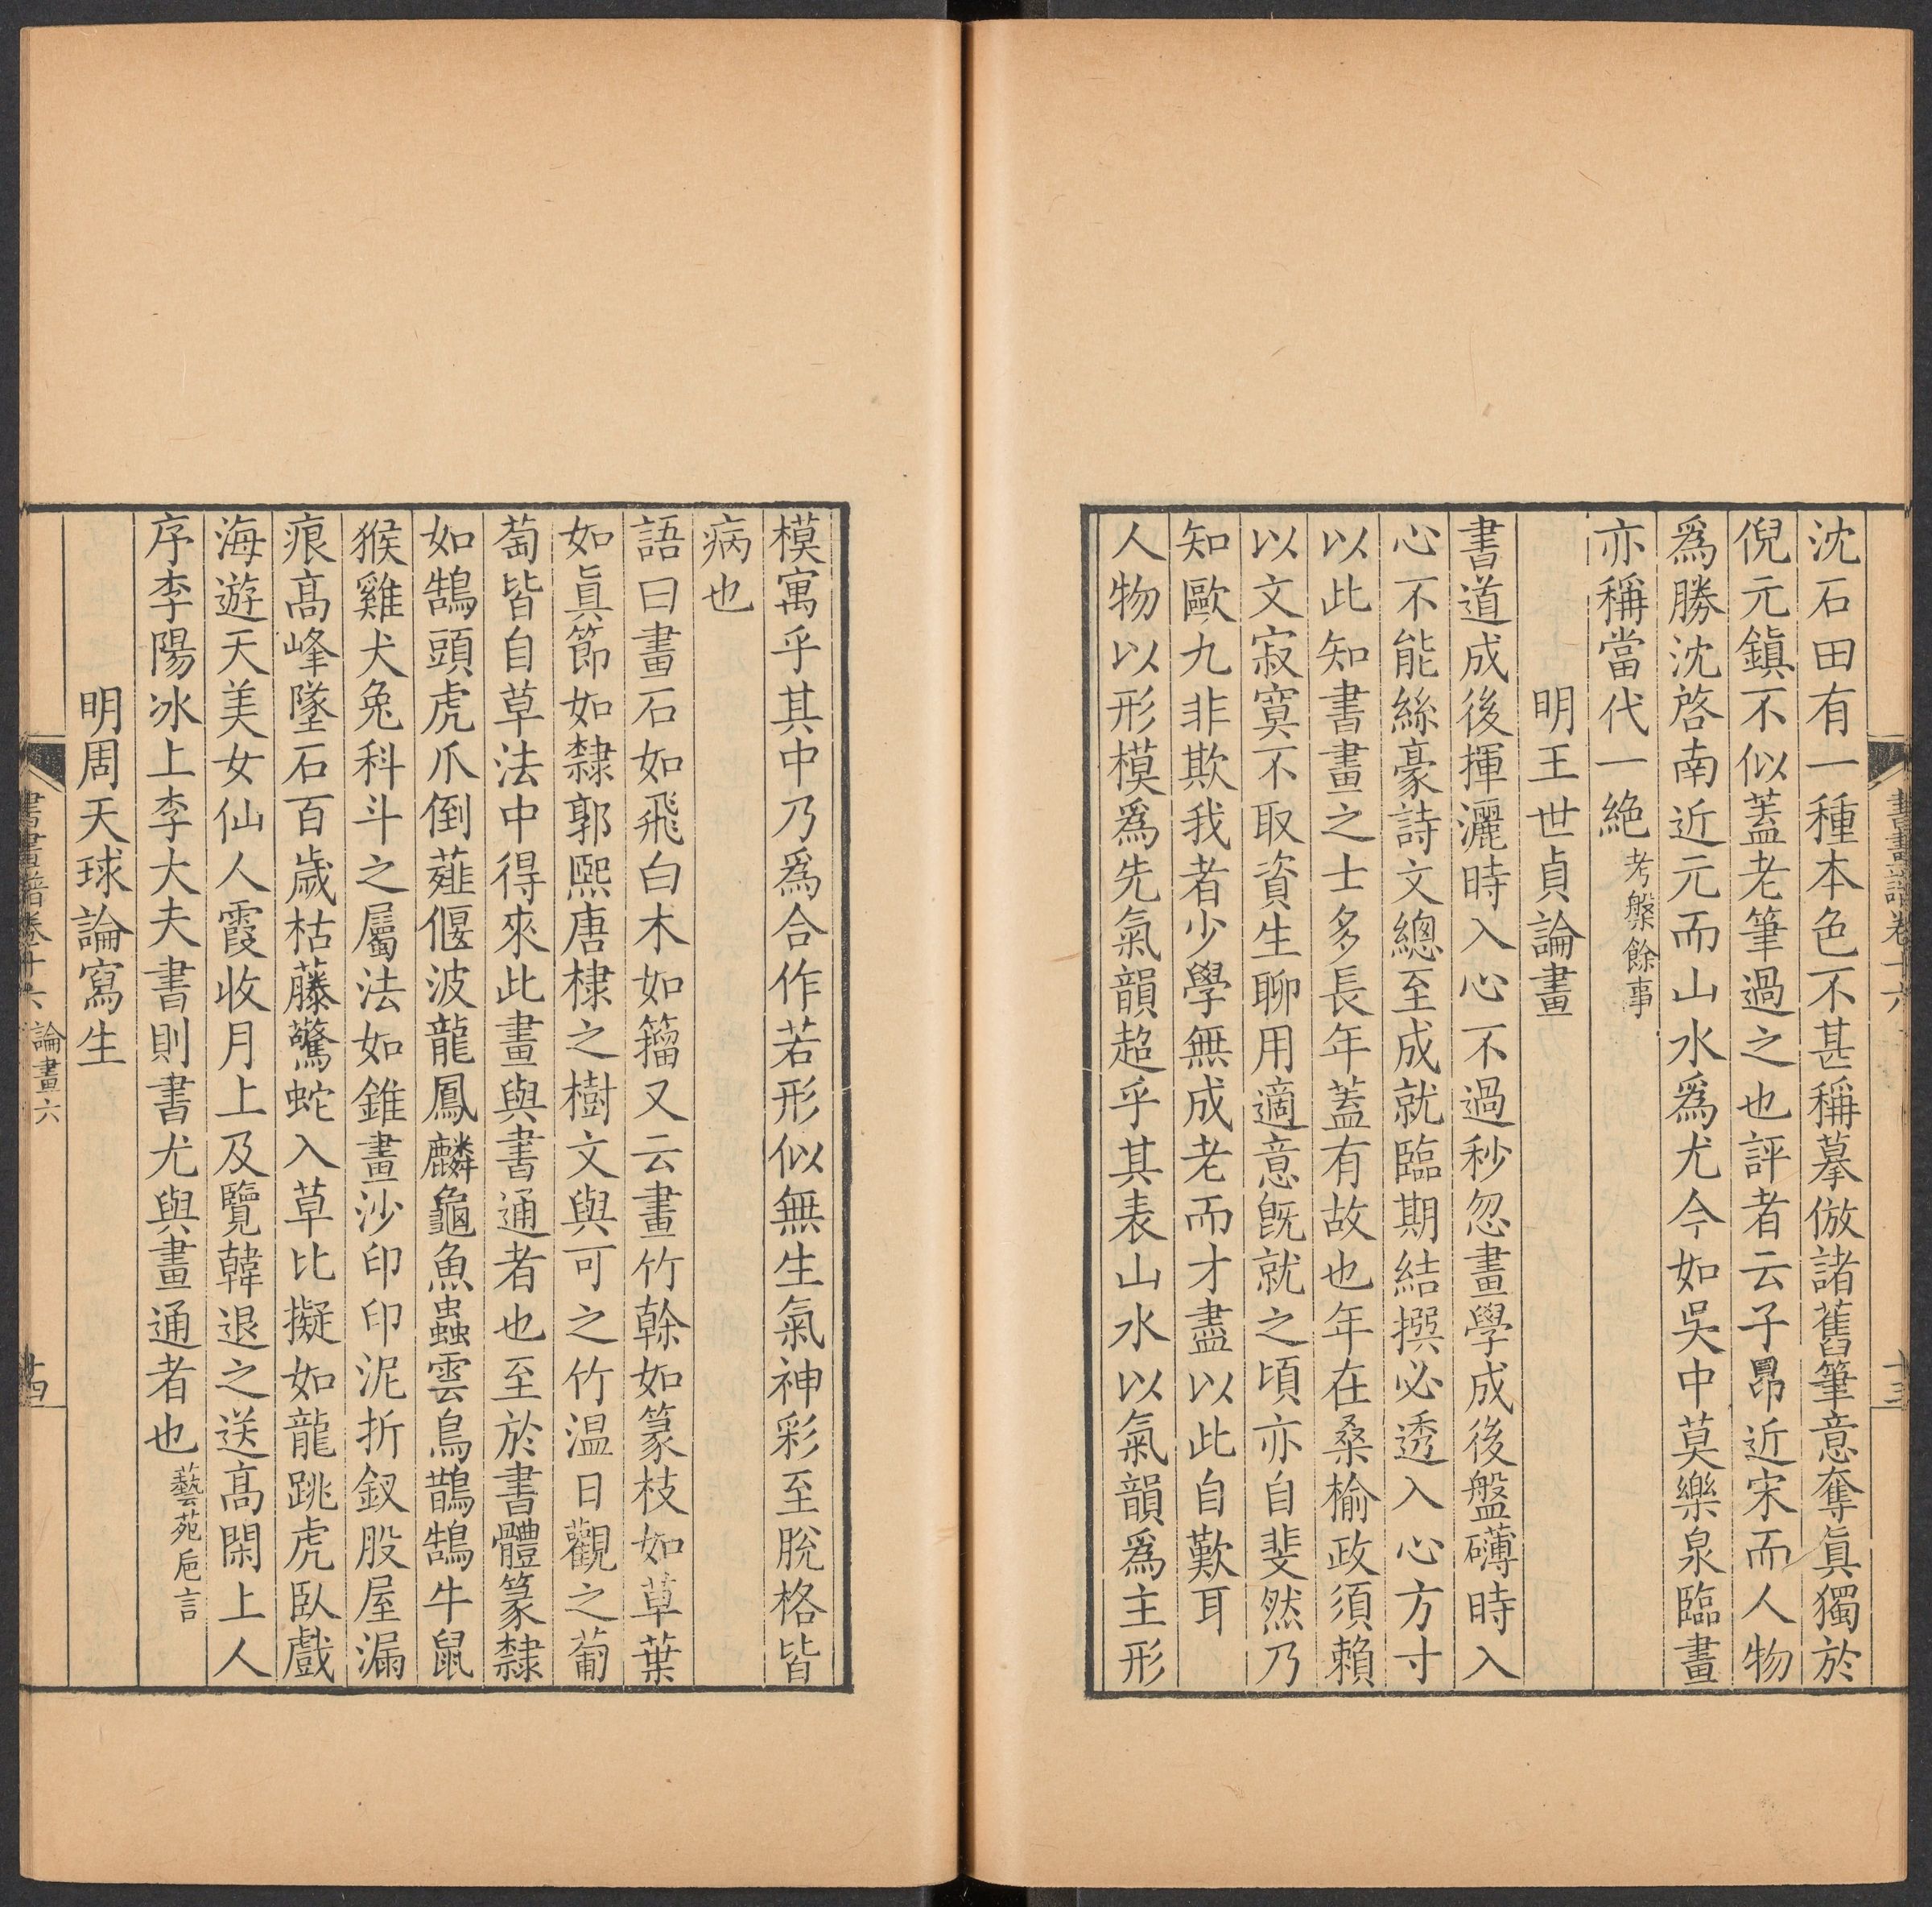 書畫譜卷十六
十三
沈石田有一種本色不甚稱摹倣諸舊筆意奪眞獨於
倪元鎭不似蓋老筆過之也評者云子昂近宋而人物
爲勝沈啓南近元而山水爲尤今如吳中莫樂泉臨畫
亦稱當代一絶考槃餘事
明王世貞論畫
書道成後揮灑時入心不過秒忽畫學成後盤礴時入
心不能絲豪詩文總至成就臨期結撰必透入心方寸
以此知書畫之士多長年蓋有故也年在桑榆政須賴
以文寂寞不取資生聊用適意旣就之頃亦自斐然乃
知歐九非欺我者少學無成老而才盡以此自歎耳
人物以形模爲先氣韻超乎其表山水以氣韻爲主形
模寓乎其中乃爲合作若形似無生氣神彩至脫格皆
病也
語曰畫石如飛白木如籀又云畫竹榦如篆枝如草葉
如眞節如隸郭熙唐棣之樹文與可之竹温日觀之葡
萄皆自草法中得來此畫與書通者也至於書體篆隸
如鵠頭虎爪倒薤偃波龍鳳麟龜魚蟲雲鳥鵲鵠牛鼠
猴雞犬兔科斗之屬法如錐畫沙印印泥折釵股屋漏
痕高峰墜石百歲枯藤驚蛇入草比擬如龍跳虎臥戲
海遊天美女仙人霞收月上及覽韓退之送高閑上人
序李陽冰上李大夫書則書尤與畫通者也藝苑巵言
明周天球論寫生
書畫譜卷十六 論畫六
十四